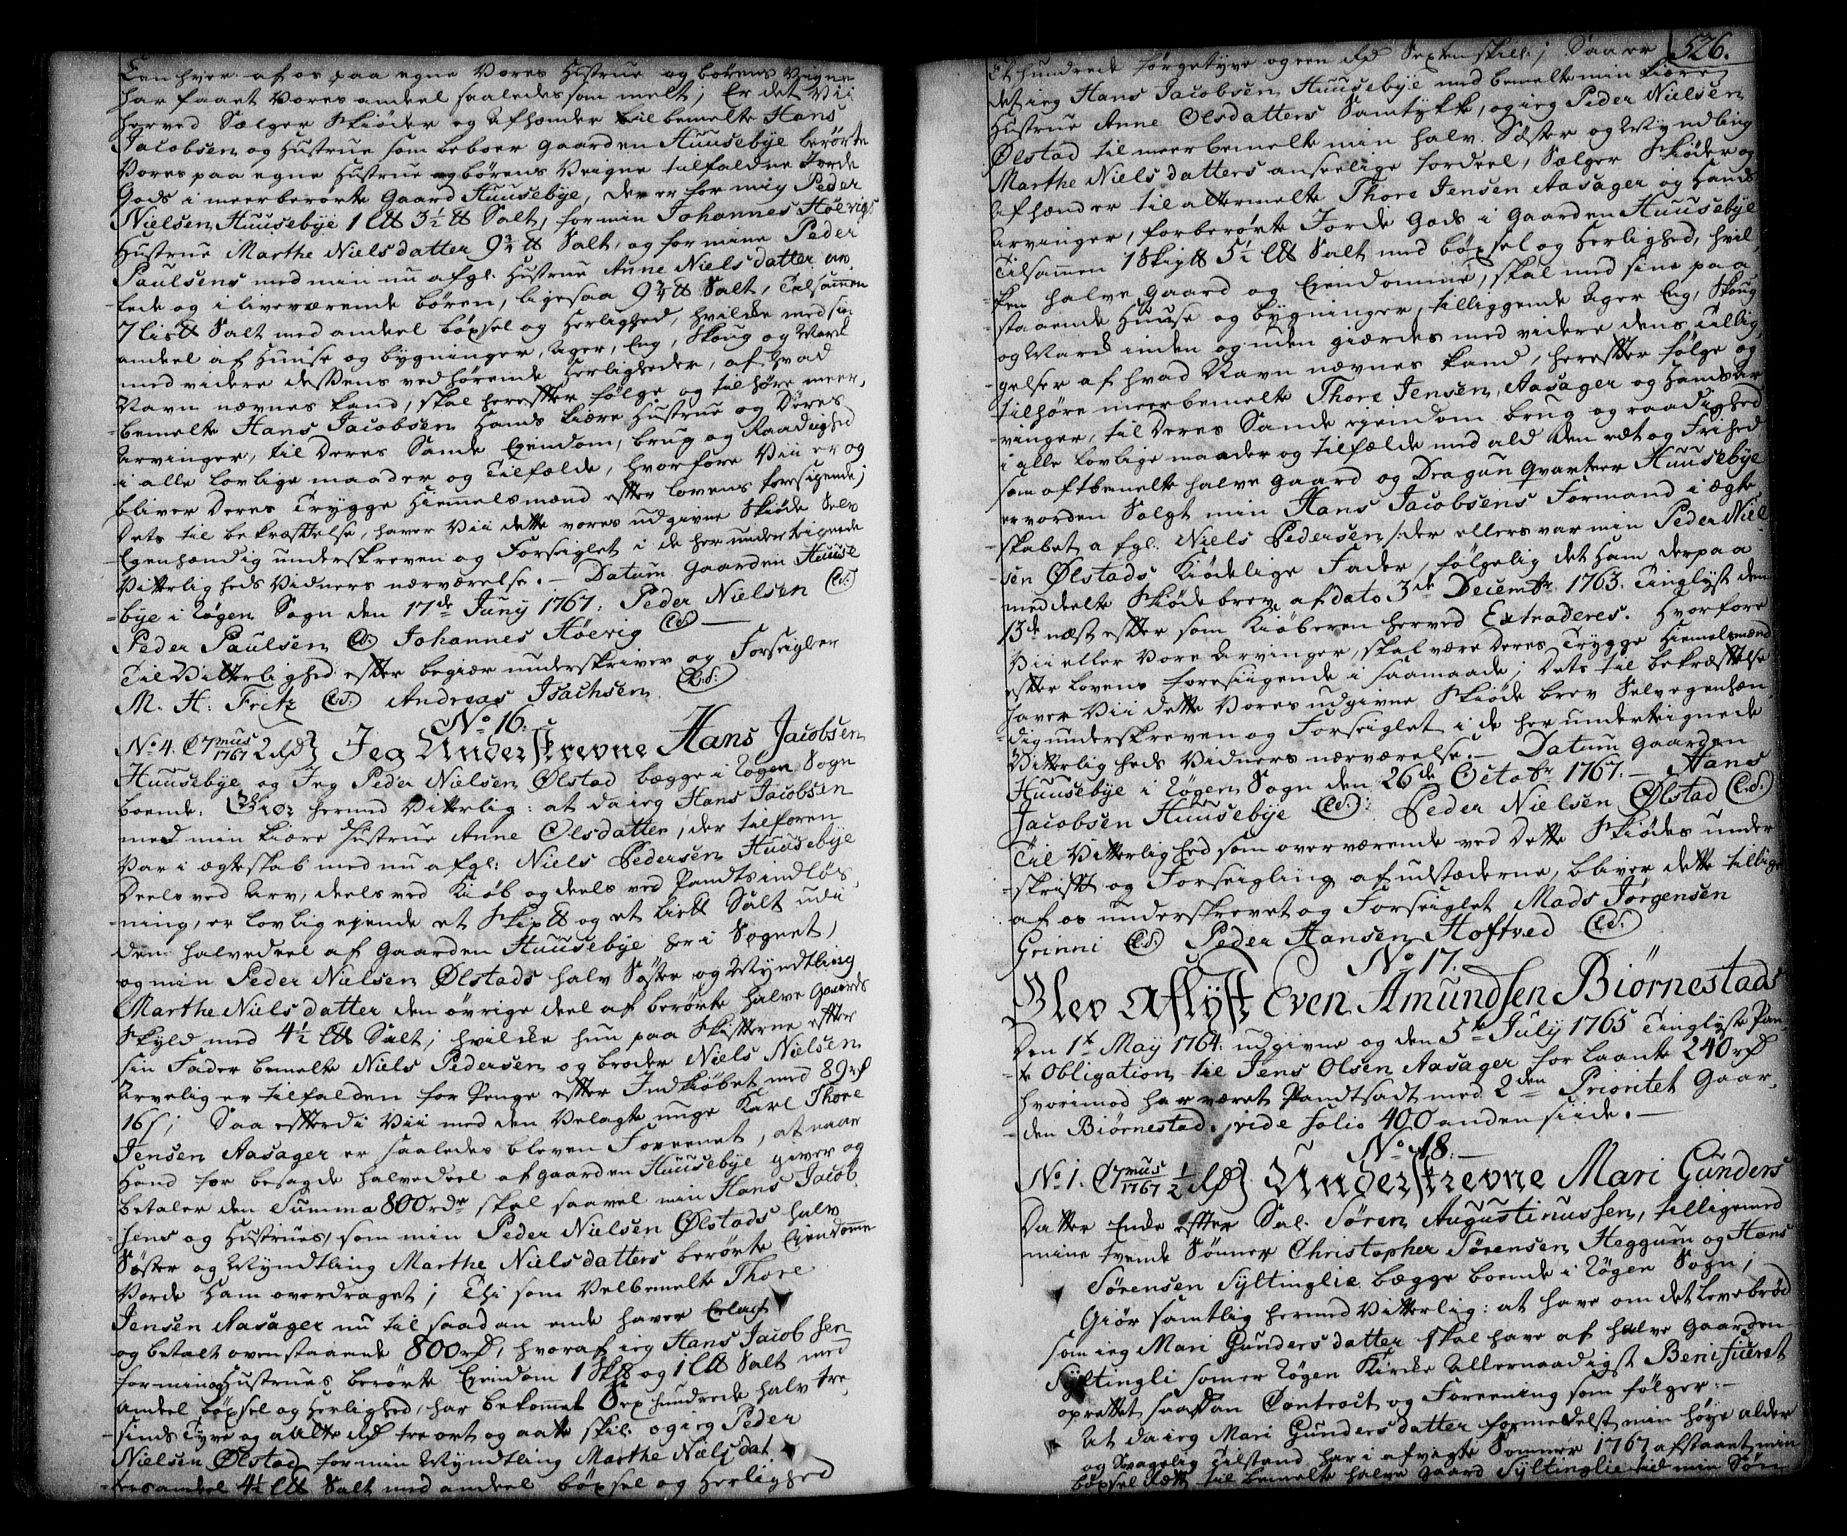 Een hver af os paa egne Vores Hustrue og børens Veigne
har faaet Vores andeel saaledes som melt; Er det Vii
herved Sælger Skiøder og Afhænder til bemelte Hans
Jacobsen og Hustrue som beboer gaarden Huusebye berørte
Vores paa egne Hustrue og børens Veigne tilfaldne Jorde
Gods i meerberørte Gaard Huusebye, der er for mig Peder
Nielsen Huusebye 1 L℔ 3½ ℔ Salt, for min Johannes Høevigs
Hustrue Marthe Nielsdatter 9¾ ℔ Salt, og for mine Peder
Paulsens med min nu afgl. Hustrue Anne Nielsdatter av
lede og i liveværende børen, ligesaa 9¾ ℔ Salt, Tilsammen
7 lis℔ Salt med andeel bøxsel og Herlighed, hvilke med sin
andeel af Huuse og bygninger, Ager, Eng, Skoug og Mark
med videre dessens vedhørende Herligheder, af hvad
Navn nævnes kand, skal herefter følge og tilhøre meer-
bemelte Hans Jacobsen Hands kiære Hustrue og Deres
Arvinger, til Deres Sande Eiendom, brug og Raadighed
i alle lovlige maader og Tilfælde, hvorfore Vii er og
bliver Deres Trygge Hiemelsmænd efter Lovens foresigende;
Dets til bekræftelse, haver Vii dette vores udgivne Skiøde Selv
Egenhændig underskreven og Forsiglet i de her undertegnede
Vitterligheds Vidners nærværelse. — Datum Gaarden Huuse
bye i Røgen Sogn den 17de Juny 1767. Peder Nielsen (L.S.)
Peder Paulsen (L.S.) Johannes Høevig (L.S.) —
Til Vitterlighed efter begiær underskriver og Forseigler
M. H. Fritz (L.S.) Andreas Isachsen (L.S.)
No 16.
No 4. C 7mus 1767 2 rd Jeg Underskrevne Hans Jacobsen
Huusebye og Jeg Peder Nielsen Ølstad begge i Røgen Sogn
boende: Giør hermed Vitterlig: at da ieg Hans Jacobsen
med min kiære Hustrue Anne Olsdatter, der tilforen
Var i ægteskab med nu afgl: Niels Pedersen Huusebye
Deels ved Arv, deels ved Kiøb og deels ved Pandts indløs-
ning, er lovlig ejende et Skip℔ og et Lis℔ Salt udi
den halvedeel af Gaarden Huusebye her i Sognet,
og min Peder Nielsen Ølstads halv Søster og Myndtling
Marthe Nielsdatter den øvrige deel af berørte halve Gaards
Skyld med 4½ L℔ Salt, hvilke hun paa Skifterne efter
sin Fader bemelte Niels Pedersen og broder Niels Nielsen
Arvelig er tilfalden for Penge efter Indkiøbet med 89 rd
16 s; Saa efterdi Vii med den Velagte unge Karl Thore
Jensen Aasager er saaledes bleven Foreenet, at naar
Hand for besagde halvedeel af gaarden Huusebye giver og
betaler den Summa 800 rdr skal saavel min Hans Jacob-
sens og Hustrues, som min Peder Nielsen Ølstads halv
Søster og Myndtling Marthe Nielsdatters berørte Eiendomme
Vorde Ham overdraget; Thi som Velbemelte Thore
Jensen Aasager nu til saadan ende haver Erlagt
og betalt ovenstaaende 800 rd, hvoraf ieg Hans Jacobsen
for min og Hustrues berørte Eiendom 1 Sk℔ og 1 L℔ Salt med
andeel bøxsel og Herlighed, har bekommet Sex hundrede halv tre-
sinds Tyve og Aatte rd tre ort og aatte skil: og ieg Peder
Nielsen Ølstad for min Myndtling Marthe Nielsdat-
ters andeel 4½ L℔ Salt med andeel bøxsel og Herlighed
526.
Et hundrede Førgetyve og een rd Sexten skill; Saa er
det ieg Hans Jacobsen Huusebye med bemelte min kiære
Hustrue Anne Olsdatters Samtykke, og ieg Peder Nielsen
Ølstad til meerbemelte min halv Søster og Myndling
Marthe Nielsdatters anseelige fordeel, Sælger Skiøder og
Afhænder til altermelte Thore Jensen Aasager og Hands
Arvinger, forberørte Jorde Gods i Gaarden Huusebye
Tilsammen 1 Skip℔ 5½ L℔ Salt med bøxsel og Herlighed, hvil-
ken halve Gaard og Eiendomme, skal med sine paa
staaende Huuse og bygninger, tilliggende Ager Eng, Skoug
og Mark inden og uden giærdes med videre dens tillig-
gelser af hvad Navn nævnes kand, herefter følge og
tilhøre meerbemelte Thore Jensen Aasager og Hands Ar-
vinger, til Deres Sande ejendom brug og raadighed
i alle lovlige maader og tilfælde med ald den ræt og Frihed
som oftbemelte halve gaard og Dragun Qvarteer Huusebye
er vorden Solgt min Hans Jacobsens Formand i ægte-
skabet afgl. Niels Pedersen /: der ellers var min Peder Niel-
sen Ølstads Kiødelige Fader, følgelig det Ham derpaa
meddeelte Skiødebrev af dato 3de Decembr 1763. Tinglyst den
13de næst efter som Kiøberen herved Extraderes. Hvorfore
Vii eller Vore Arvinger, skal være Deres Trygge Hiemelsmænd
efter Lovens foresiigende i saamaade; Dets til bekræftelse
haver Vii dette Vores udgivne Skiøde brev Selv egenhæn-
dig underskreven og Forseiglet i de her undertegnede
Vitterligheds Vidners nærværelse. — Datum Gaarden
Huusebye i Røgen Sogn den 26de Octobr 1767. — Hans
Jacobsen Huusebye (L.S.): Peder Nielsen Ølstad (L.S.)
Til Vitterlighed som overværende ved Dette Skiødes under-
skrift og Forseigling af udstæderne, bliver dette tillige
af os underskrevet og Forseiglet Mads Jørgensen
Grinni (L.S.) Peder Hansen Hoftved (L.S.)
No 17.
Blev Aflyst Even Amundsen Biørnestads
Den 1te May 1764. udgivne og den 5te July 1765 Tinglyste Pan-
te Obligation til Jens Olsen Aasager for laante 240 rd
hvorimod har været Pandtsadt med 2den Prioritet Gaar-
den Biørnestad, vide Folio 400 anden siide. —
No 18. —
No 1. C 7mus 1767 ½ rd Underskrevne Mari Gunders
Datter Enke efter Sal. Søren Augustinussen, tilligemed
mine tvende Sønner Christopher Sørensen Heggum og Hans
Sørensen Syltinglie begge boende i Røgen Sogn;
Giør samtlig hermed Vitterlig: at have om det levebrød
som ieg Mari Gundersdatter skal have af halve Gaarden
Syltingli som er Røgen Kirke Allernaadigst Benificeret
oprettet saadan Contract og Foreening som følger: —
At da ieg Mari Gundersdatter formedelst min høye alder
og Svagelig Tilstand har i afvigte Sommer 1767 afstaaet min
bøxsel Ræt til bemelte halve gaard Syltinglie til min Søn